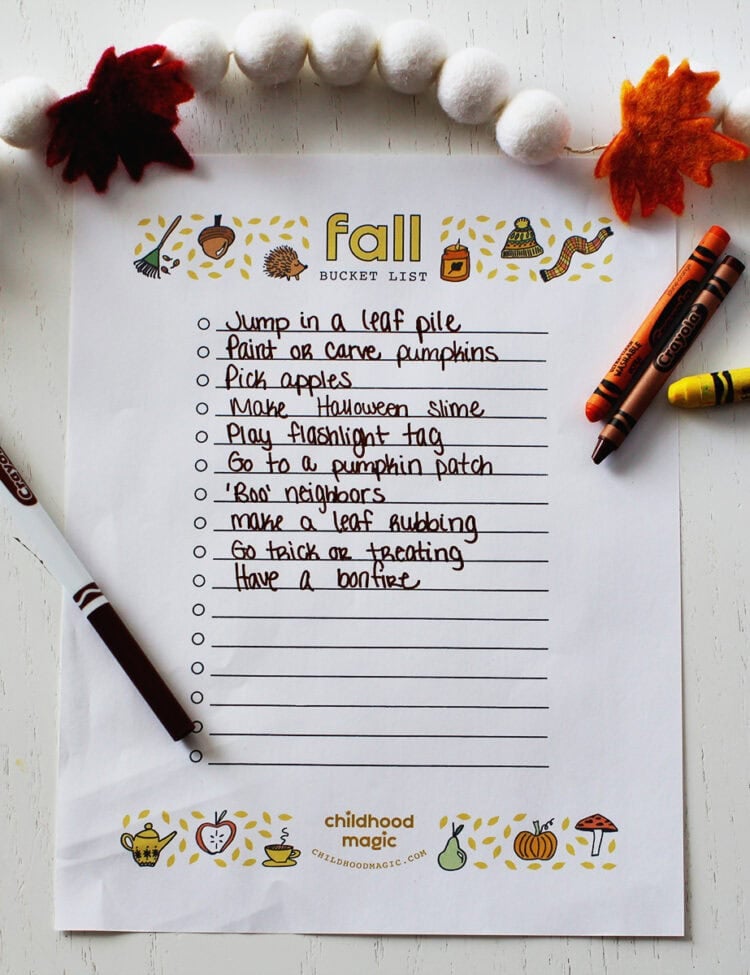 fall
BUCKET LIST
Jump in a leaf pile
Paint or carve pumpkins
Pick apples
Make Halloween slime
Play flashlight tag
Go to a pumpkin patch
'Boo' neighbors
make a leaf rubbing
Go trick or treating
Have a bonfire
childhood
magic
CHILDHOODMAGIC.COM
Crayola
WASHABLE
Crayola